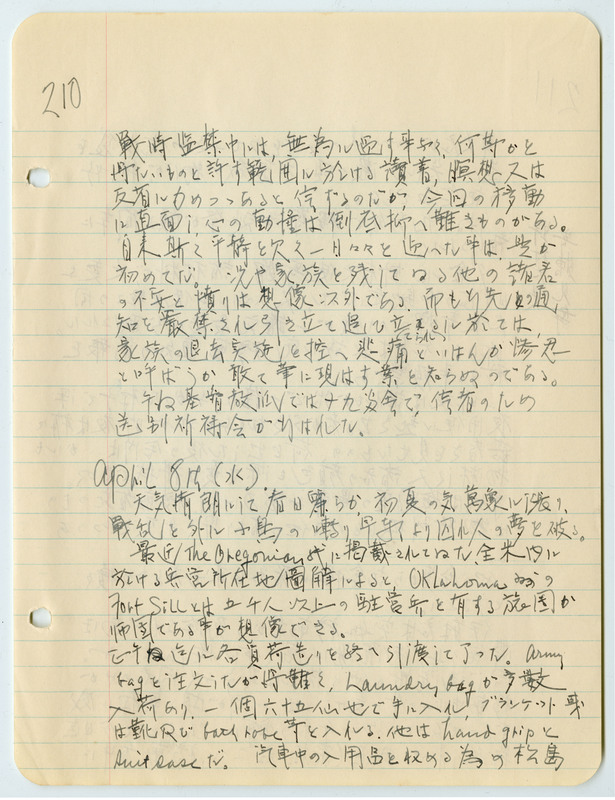 210
戦時監禁中には、無為に過す事なく、何等かと
得たいものと許す範囲に於ける讀書、瞑想、又は
反省に力めつつあると信ずるのだが、今回の移動
に直面し心の動揺は到底抑へ難きものがある。
自来斯く平静を欠く一日々々を迎へた事は、之が
初めてだ。況や家族を残してゐる他の諸君
の不安と憤りは想像以外である。而も
知を厳禁され引き立て追ひ立てられるに於ては、
家族の退去実施を控へ悲痛といはんか惨忍
と呼ばうか敢て筆に現はす業を知らぬのである。
午后基督教派では十九舎で、信者のため
送別祈祷会が行はれた。
April 8th (水).
天気晴朗にて春日麗らか、初夏の気萬象に漲り、
戦乱を外に小鳥の囀り早朝より囚れ人の夢を破る。
最近 The Oregonian 紙に掲載されてゐた全米内に
於ける兵営所在地圖解によると、Oklahoma 州の
Fort Sill とは五千人以上の駐営兵を有する旅団か
師団である事が想像できる。
正午迄に各員荷造りを終へ引渡して了った。Army
bag を注文したが得難く、Laundry bag が多数
入荷あり、一個六十五仙也で手に入れ、ブランケット
は靴及び bath robe 等を入れる。他は hand grip と
suitcase だ。汽車中の入用品を収める為の松島